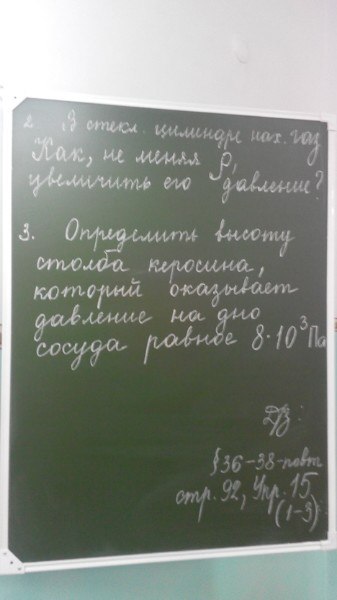 2. В стекл. цилиндре нах. газ
Как, не меняя ρ,
увеличить его давление?
3. Определить высоту
столба керосина,
который оказывает
давление на дно
сосуда равное 8·10³Па
ДЗ:
§36-38-повт.
стр. 92, Упр. 15
(1-3)